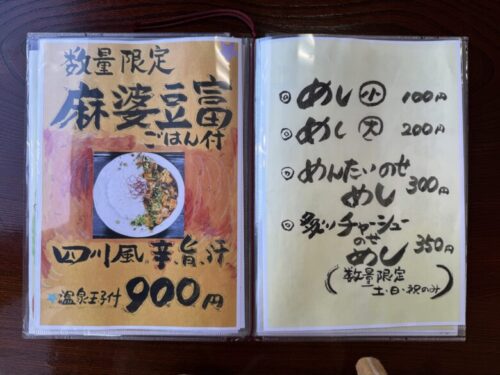 数量限定
麻婆豆富
ごはん付
四川風、辛、旨、汁
温泉玉子付 900円
◎めし小 100円
◎めし大 200円
◎めんたいのせ
めし 300円
◎炙りチャーシュー
のせ
めし 350円
(数量限定
土・日・祝のみ)